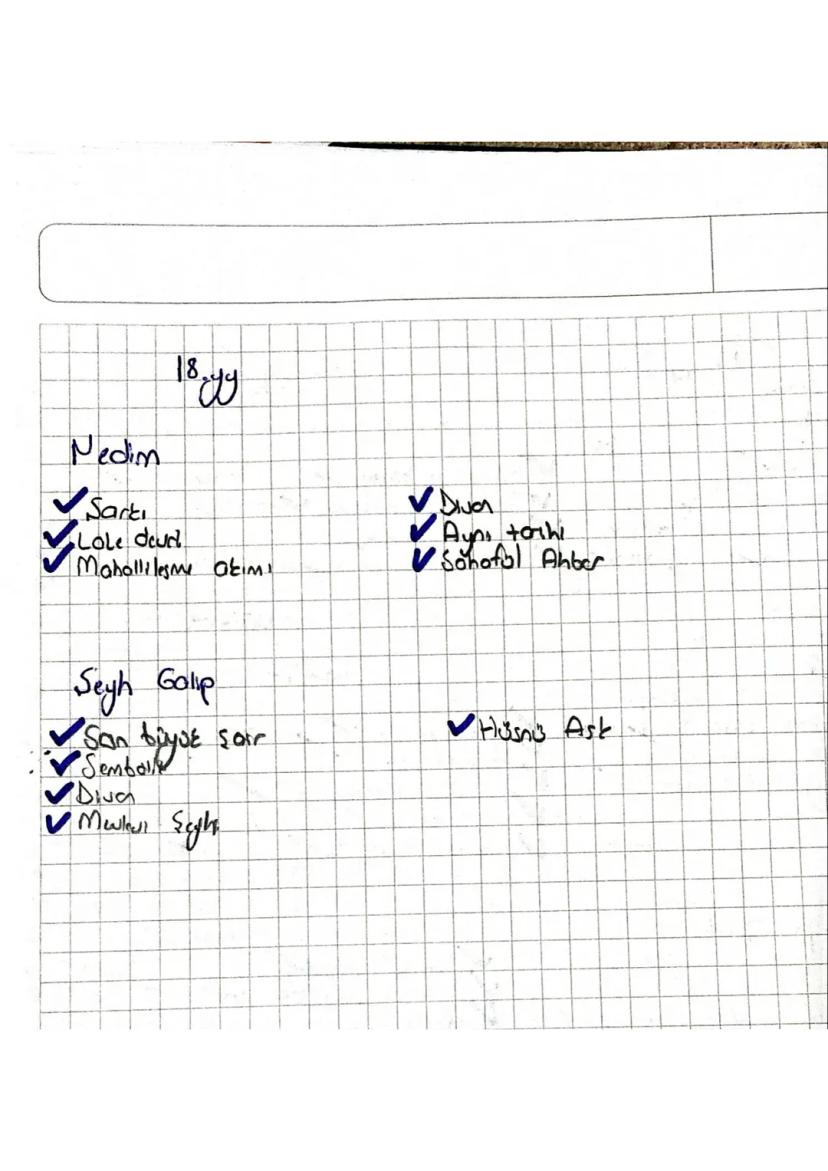 18.yy
Nedim
✓ Şarkı
✓ Lale devri
✓ Mahallileşme akımı
✓ Divan
✓ Ayni tarihi
✓ Sahaful Ahbar
Şeyh Galip
✓ Son büyük şair
✓ Sembolik
✓ Divan
✓ Mevlevi Şeyhi
✓ Hüsnü Aşk